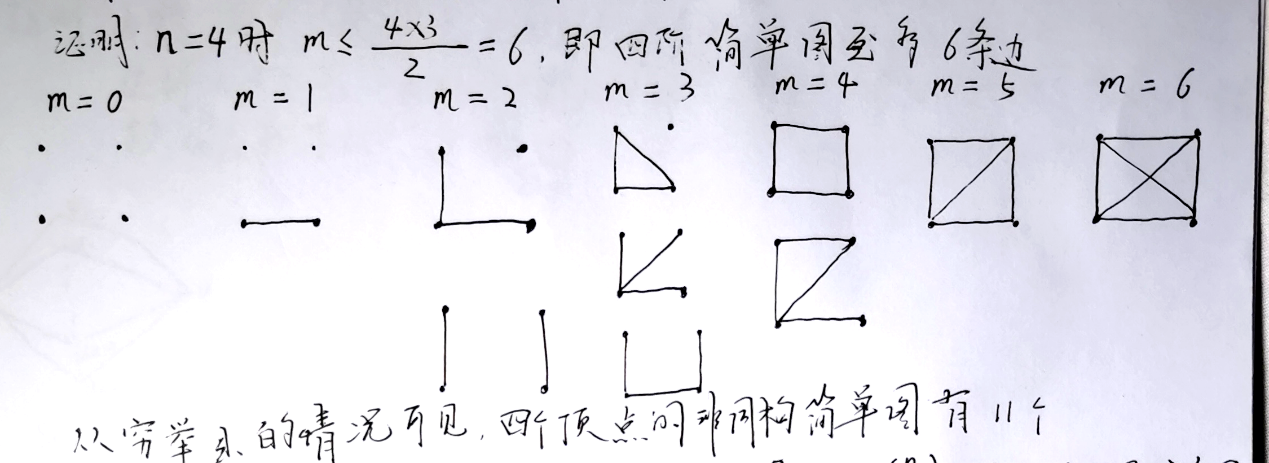 证明: n=4时 m≤ 4×3/2 =6, 即四阶简单图至多6条边
m=0 m=1 m=2 m=3 m=4 m=5 m=6
从穷举的情况可见, 四个顶点的非同构简单图有11个